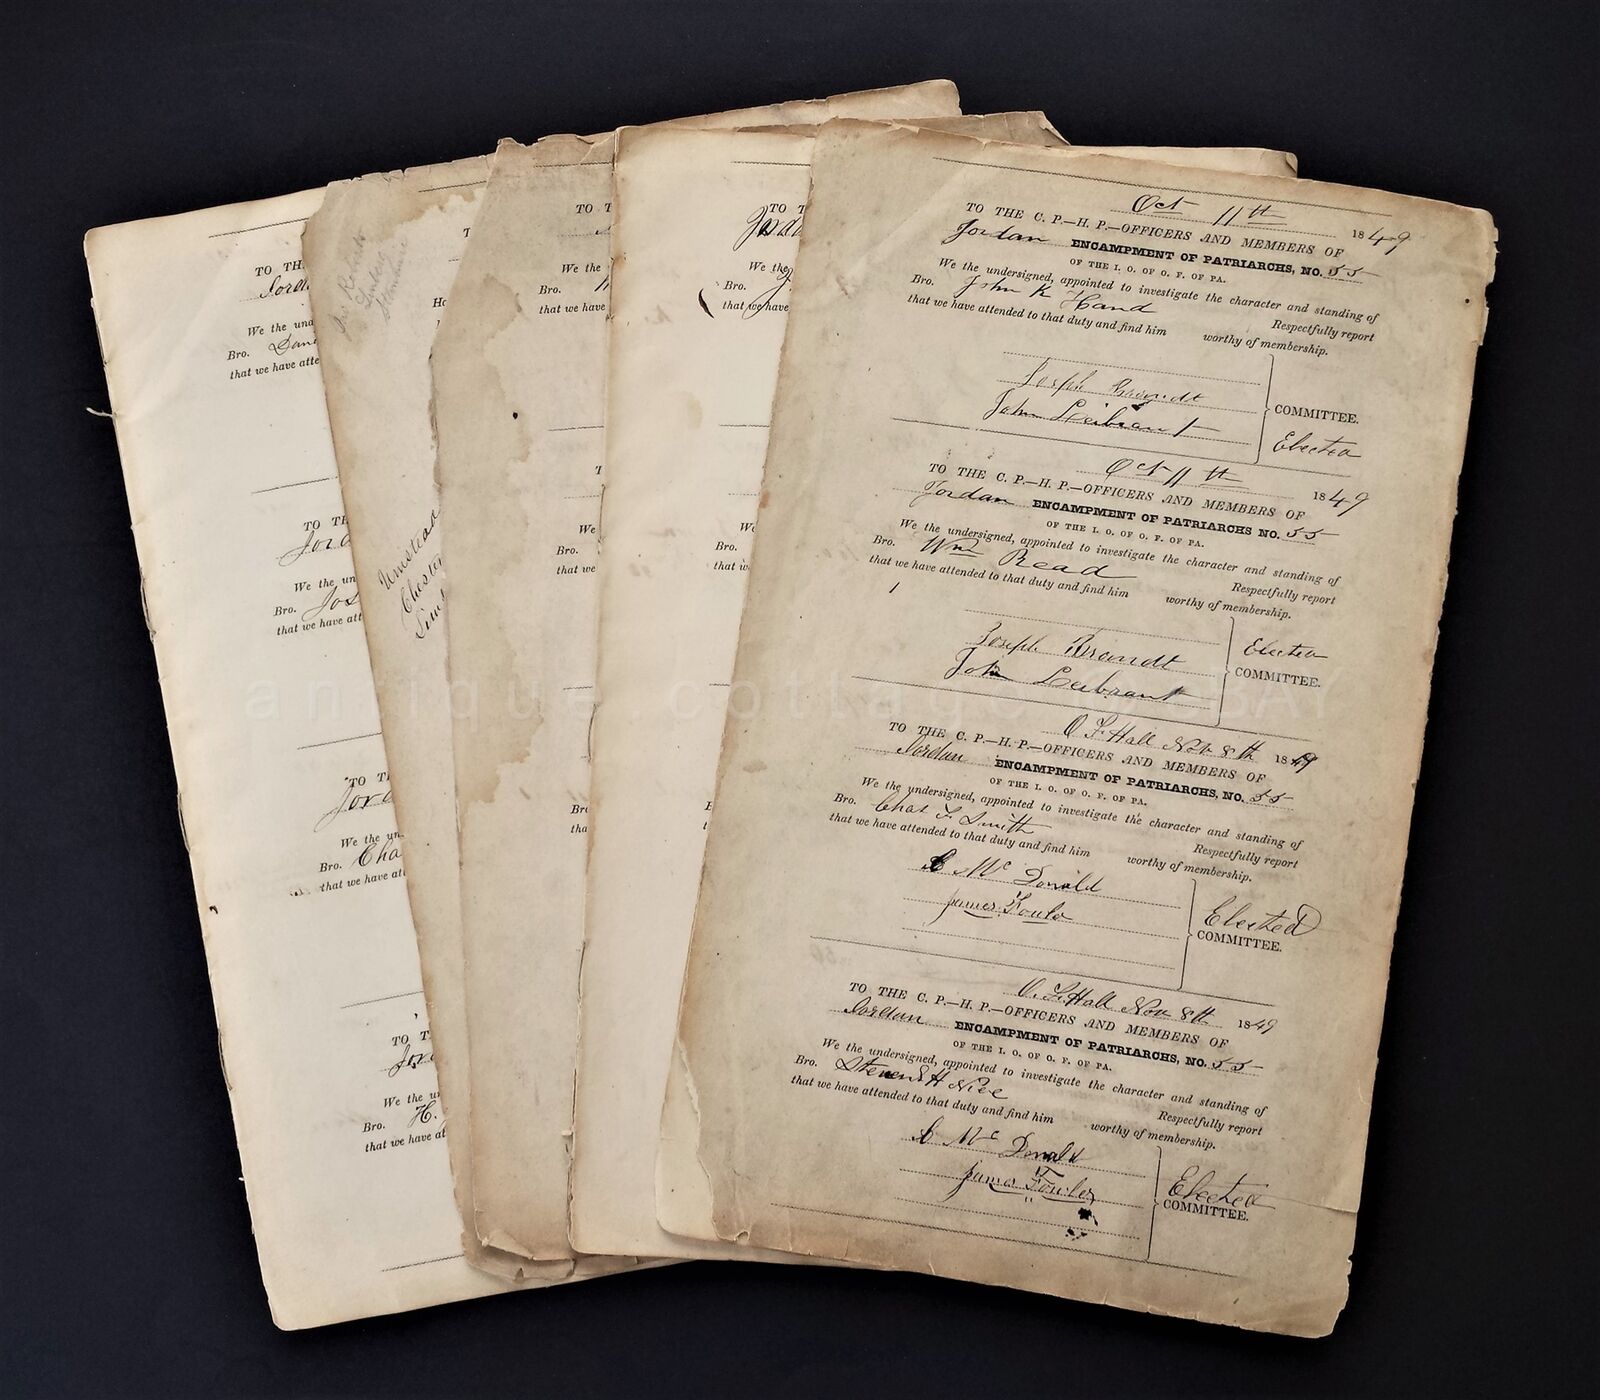 Oct 11th 1849
TO THE C. P.—H. P.—OFFICERS AND MEMBERS OF
Jordan ENCAMPMENT OF PATRIARCHS, NO. 55
OF THE I. O. OF O. F. OF PA.
We the undersigned, appointed to investigate the character and standing of
Bro. John K Hand Respectfully report
that we have attended to that duty and find him worthy of membership.
Joseph Brandt
John Leibrant
COMMITTEE.
Elected
Oct 11th 1849
TO THE C. P.—H. P.—OFFICERS AND MEMBERS OF
Jordan ENCAMPMENT OF PATRIARCHS NO. 55
OF THE I. O. OF O. F. OF PA.
We the undersigned, appointed to investigate the character and standing of
Bro. Wm Read Respectfully report
that we have attended to that duty and find him worthy of membership.
Joseph Brandt
John Leibrant
Elected
COMMITTEE.
O F Hall Nov 8th 1849
TO THE C. P.—H. P.—OFFICERS AND MEMBERS OF
Jordan ENCAMPMENT OF PATRIARCHS, NO. 55
OF THE I. O. OF O. F. OF PA.
We the undersigned, appointed to investigate the character and standing of
Bro. Chas F. Smith Respectfully report
that we have attended to that duty and find him worthy of membership.
C McDonald
James Fowler
Elected
COMMITTEE.
O. F. Hall Nov 8th 1849
TO THE C. P.—H. P.—OFFICERS AND MEMBERS OF
Jordan ENCAMPMENT OF PATRIARCHS, NO. 55
OF THE I. O. OF O. F. OF PA.
We the undersigned, appointed to investigate the character and standing of
Bro. Respectfully report
that we have attended to that duty and find him worthy of membership.
C McDonald
James Fowler
Elected
COMMITTEE.
TO TH
We the und
Bro.
that we have atte
TO TH
We the un
Bro. Jos
that we have att
TO TH
We the un
Bro. Cha
that we have at
TO T
We the u
Bro. H.
that we have at
Umstead
Chester
TO T
We the
Bro.
that we have
We
Bro.
that we
Bro
tha
TO T
Jorda
We the
that we have
We
Bro.
that w
antique.cottage